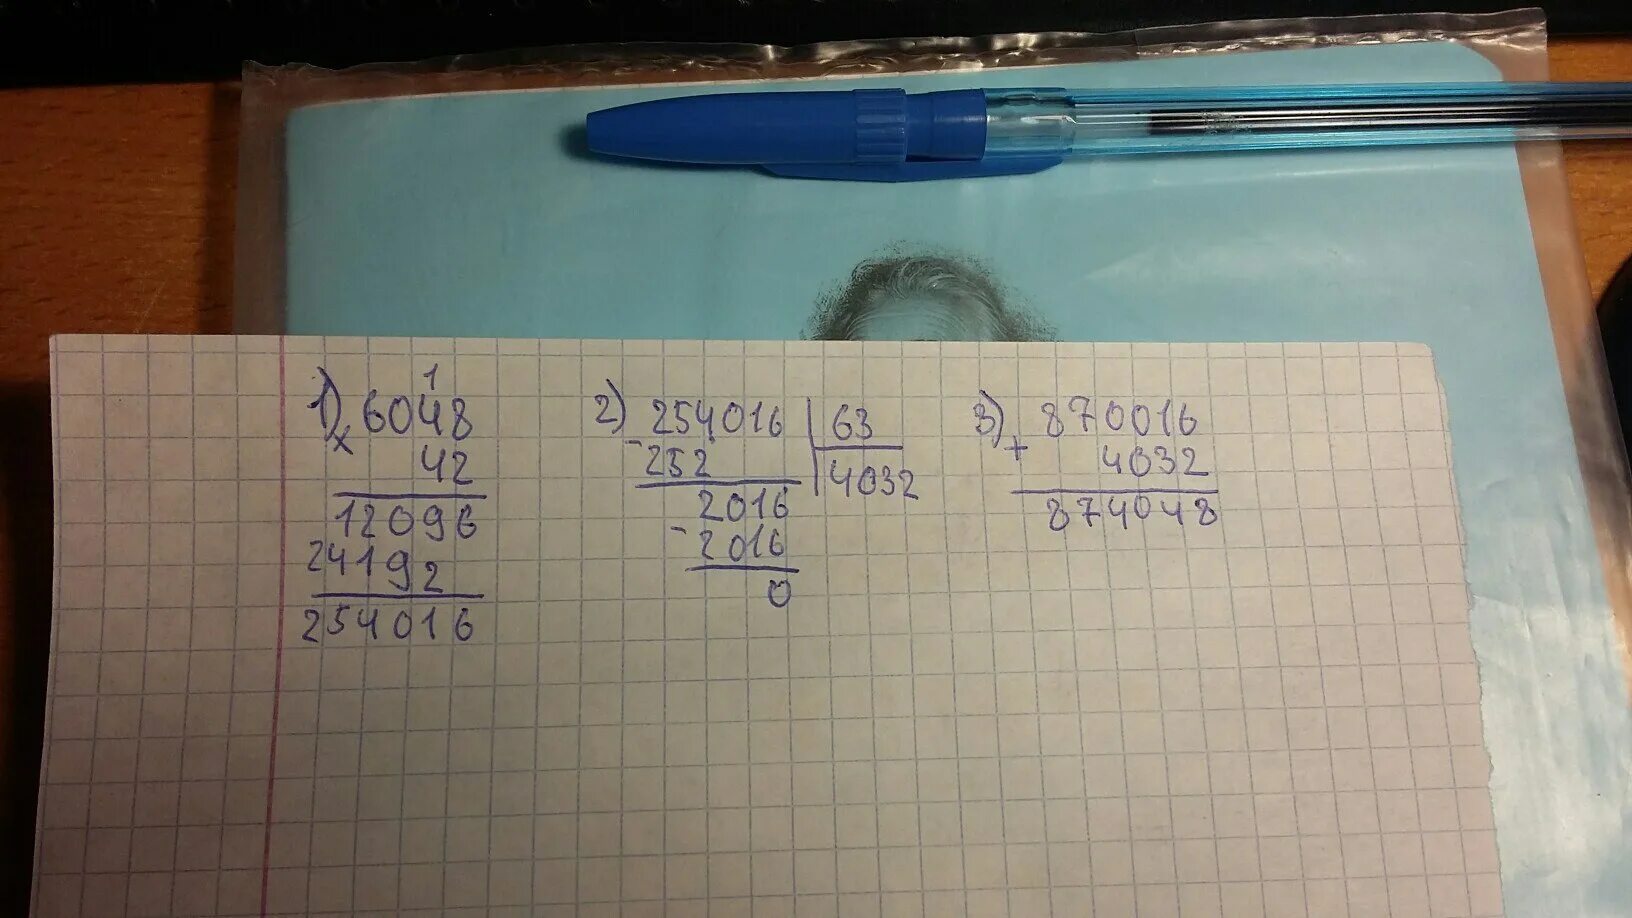 1) 1
× 6048
42
12096
24192
254016
2) 254016 | 63
- 252
4032
2016
- 2016
0
3) 870016
+ 4032
874048